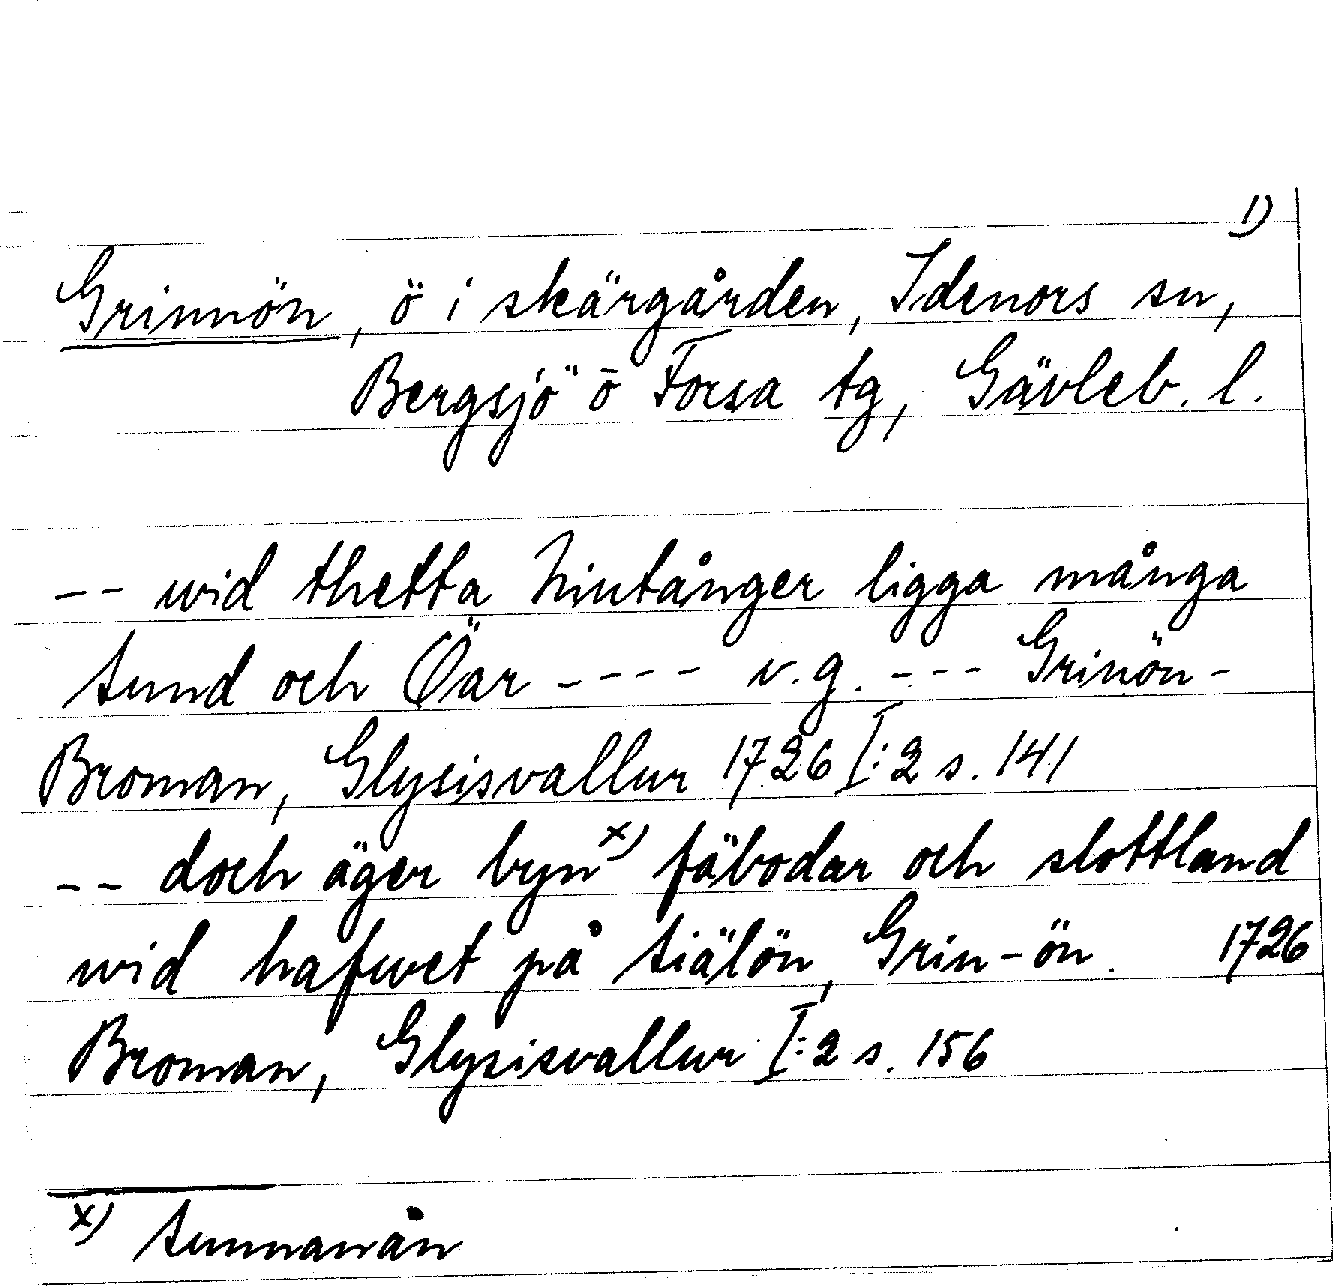 1)
Grinnön, ö i skärgården, Idenors sn,
Bergsjö o Forsa tg, Gävleb. l.
-- wid thetta Hintånger ligga många
Sund och Öar ---- v.g. --- Grinön-
Broman, Glysisvallur 1726 I:2 s. 141
-- doch äger byn x) fäbodar och slottland
wid hafwet på Siälön, Grin-ön. 1726
Broman, Glysisvallur I:2 s. 156
x) Sunnanån